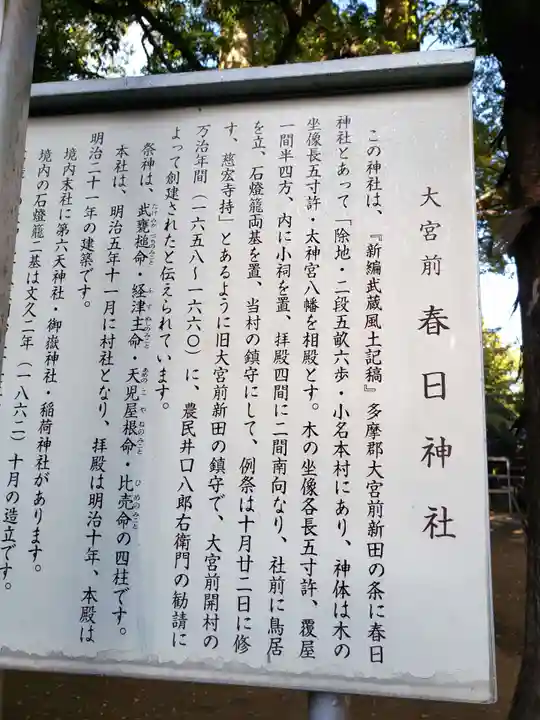 大宮前 春日神社
この神社は、『新編武蔵風土記稿』多摩郡大宮前新田の条に春日
神社とあって「除地・二段五畝六歩・小名本村にあり、神体は木の
坐像長五寸許・太神宮八幡を相殿とす。木の坐像各長五寸許、覆屋
一間半四方、内に小祠を置、拝殿四間に二間南向なり、社前に鳥居
を立、石燈籠両基を置、当村の鎮守にして、例祭は十月廿二日に修
す、慈宏寺持」とあるように旧大宮前新田の鎮守で、大宮前開村の
万治年間（一六五八～一六六〇）に、農民井口八郎右衛門の勧請に
よって創建されたと伝えられています。
祭神は、武甕槌命・経津主命・天児屋根命・比売命の四柱です。
本社は、明治五年十一月に村社となり、拝殿は明治十年、本殿は
明治二十一年の建築です。
境内末社に第六天神社・御嶽神社・稲荷神社があります。
境内の石燈籠二基は文久二年（一八六二）十月の造立です。